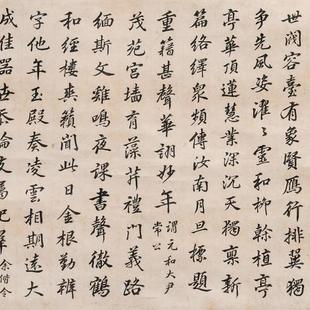 世閥容臺有象賢鴈行排翼獨
争先風姿濯〻靈和柳榦植亭
亭華頂蓮慧業深沉天獨稟新
篇絡繹衆頻傳汝南月旦摽題
重籍甚聲華詡妙年 謂元和大尹常公
茂苑宮墻有藻芹禮門義路
緬斯文雞鳴夜課書聲徹鶴
和經樓爽籟聞此日金根勤辨
字他年玉殿奏凌雲相期遠大
成佳器 余偕令